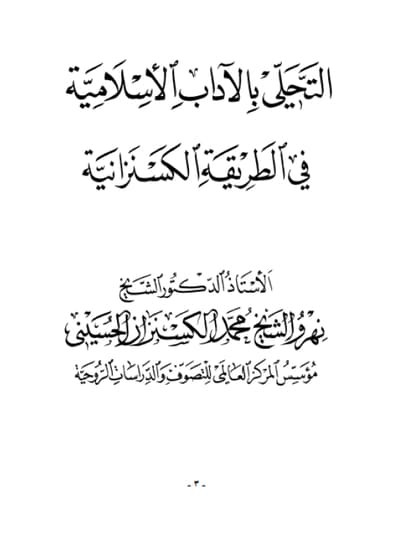 التَّحَلِّي بِالآدَابِ الأِسْلَامِيَّة
فِي الطَرِيقَةِ الكَسْنَزَانِيَّة
الأُسْتَاذُ الدّكْتُور الشَّيْخ
نهرو الشَّيْخ مُحَمَّد الكَسْنَزَان الحُسَيْنِي
مُؤَسِّسُ المَرْكَزِ العَالَمِي لِلتَصَوُّفِ وَالدِّرَاسَاتِ الرُّوحِيَّة
- ٣ -